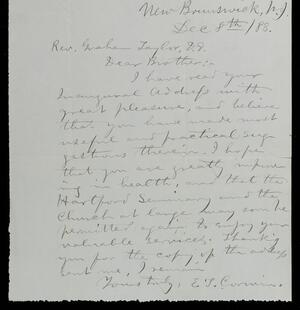 New Brunswick, N.J.
Dec 8th/88.
Rev. Graham Taylor, D.D.
Dear Brother:-
I have read your
Inaugural Address with
great pleasure, and believe
that you have made most
useful and practical sug-
gestions therein. I hope
that you are greatly improv-
ing in health, and that the
Hartford Seminary and the
Church at large may soon be
permitted again to enjoy your
valuable services. Thanking
you for the copy of the address
sent me, I remain
Yours truly, E. T. Corwin.